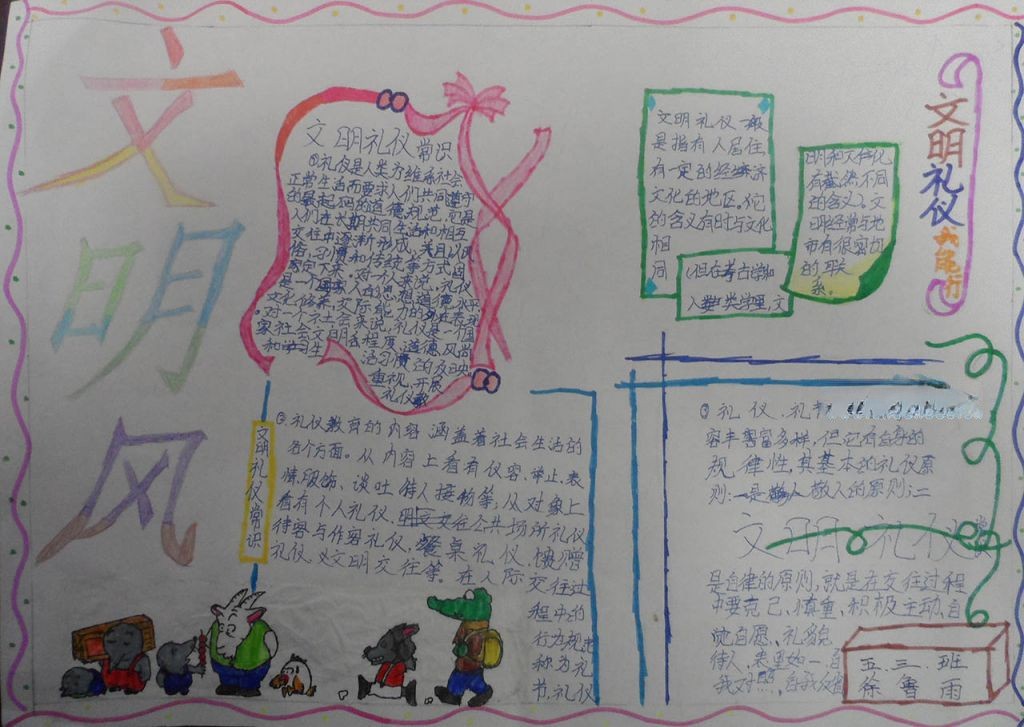 文明风
文明礼仪常识
①礼仪是人类为维系社会
正常生活而要求人们共同遵守
的最起码的道德规范，它是
人们在长期共同生活和相互
交往中逐渐形成，并且以风
俗、习惯和传统等方式固
定下来。对一个人来说，礼仪
是一个人的思想道德水平
文化修养、交际能力的外在表现
对一个社会来说，礼仪是一个国
家社会文明程度、道德风尚
和生活习惯的反映。
重视、开展
礼仪教
文明礼仪一般
是指有人居住，
有一定的经济
文化的地区。它
的含义有时与文化
相
同
但在考古学和
人类学里，文
明和文化
有截然不同
的含义。文
明经常与城
市有很密切
的联
系。
文明礼仪六能行
文明礼仪常识
②礼仪教育的内容涵盖着社会生活的
各个方面。从内容上看有仪容、举止、表
情、服饰、谈吐、待人接物等；从对象上
看有个人礼仪、公共场所礼仪
待客与作客礼仪、餐桌礼仪、馈赠
礼仪、文明交往等。在人际交往过
程中的
行为规范
称为礼
节，礼仪
③礼仪、礼节
容丰富多样，但它有自身的
规律性，其基本的礼仪原
则：一是敬人的原则；二
文明礼仪常
是自律的原则，就是在交往过程
中要克己、慎重、积极主动、自
觉自愿、礼貌
待人、表里如一，自
我对照，自我反省
五.三.班
徐鲁雨